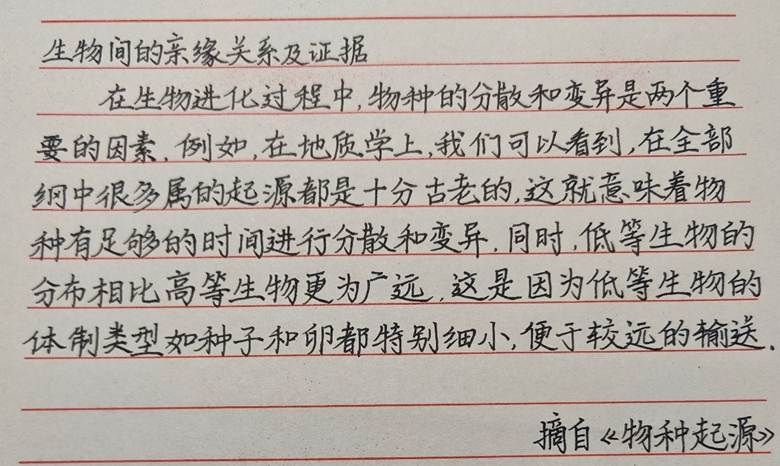 生物间的亲缘关系及证据
在生物进化过程中,物种的分散和变异是两个重
要的因素.例如,在地质学上,我们可以看到,在全部
纲中很多属的起源都是十分古老的,这就意味着物
种有足够的时间进行分散和变异.同时,低等生物的
分布相比高等生物更为广远.这是因为低等生物的
体制类型如种子和卵都特别细小,便于较远的输送.
摘自《物种起源》